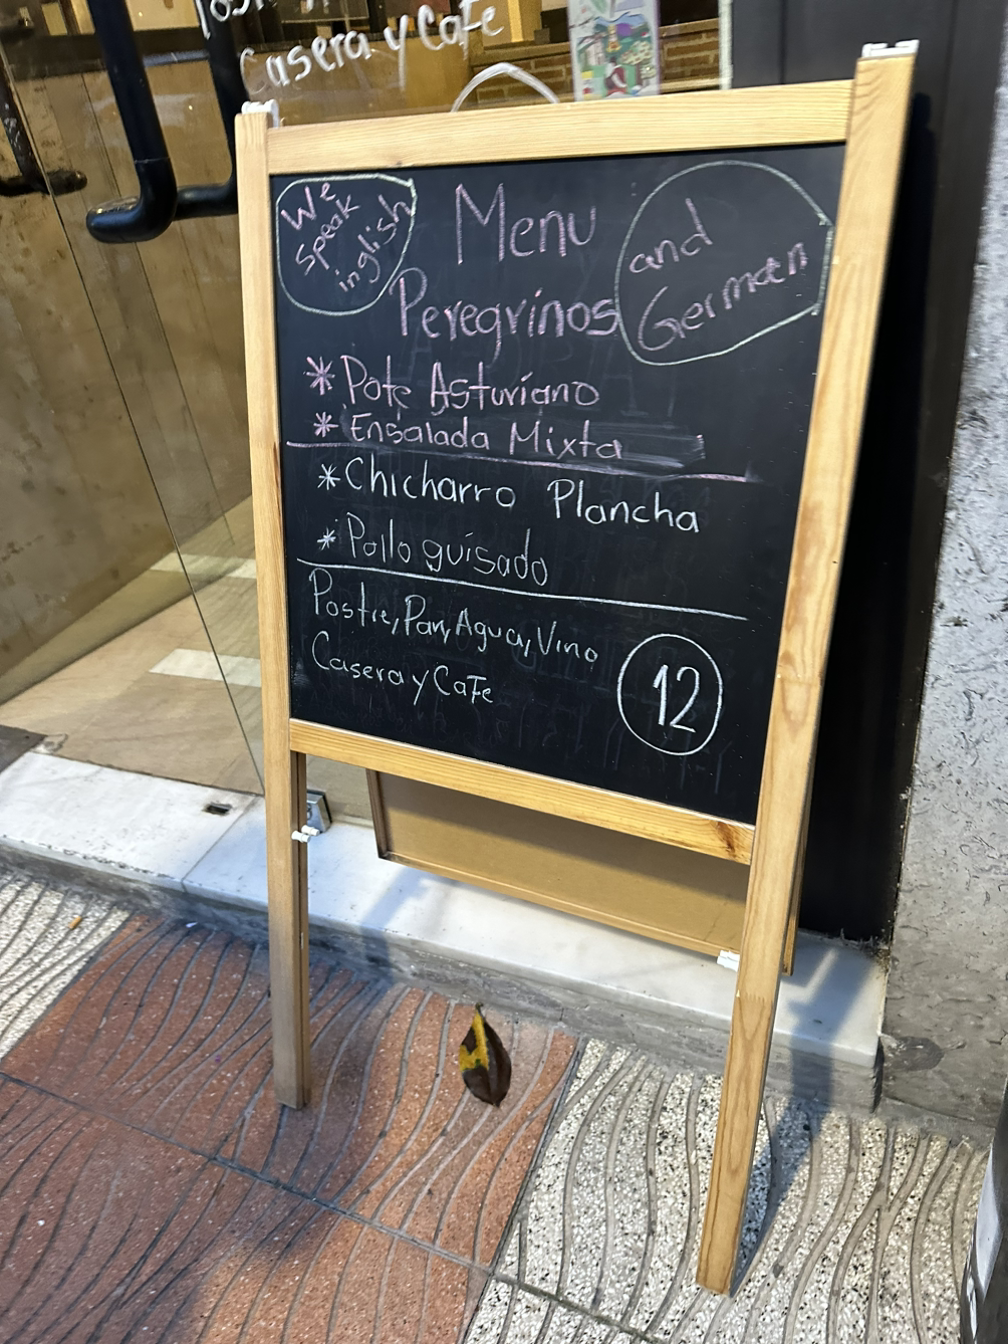 Casera y Cafe
We
Speak
inglish
Menu
Peregrinos
and
German
* Pote Asturiano
* Ensalada Mixta
* Chicharro Plancha
* Pollo guisado
Postre, Pan, Agua, Vino
Casera y Cafe
12